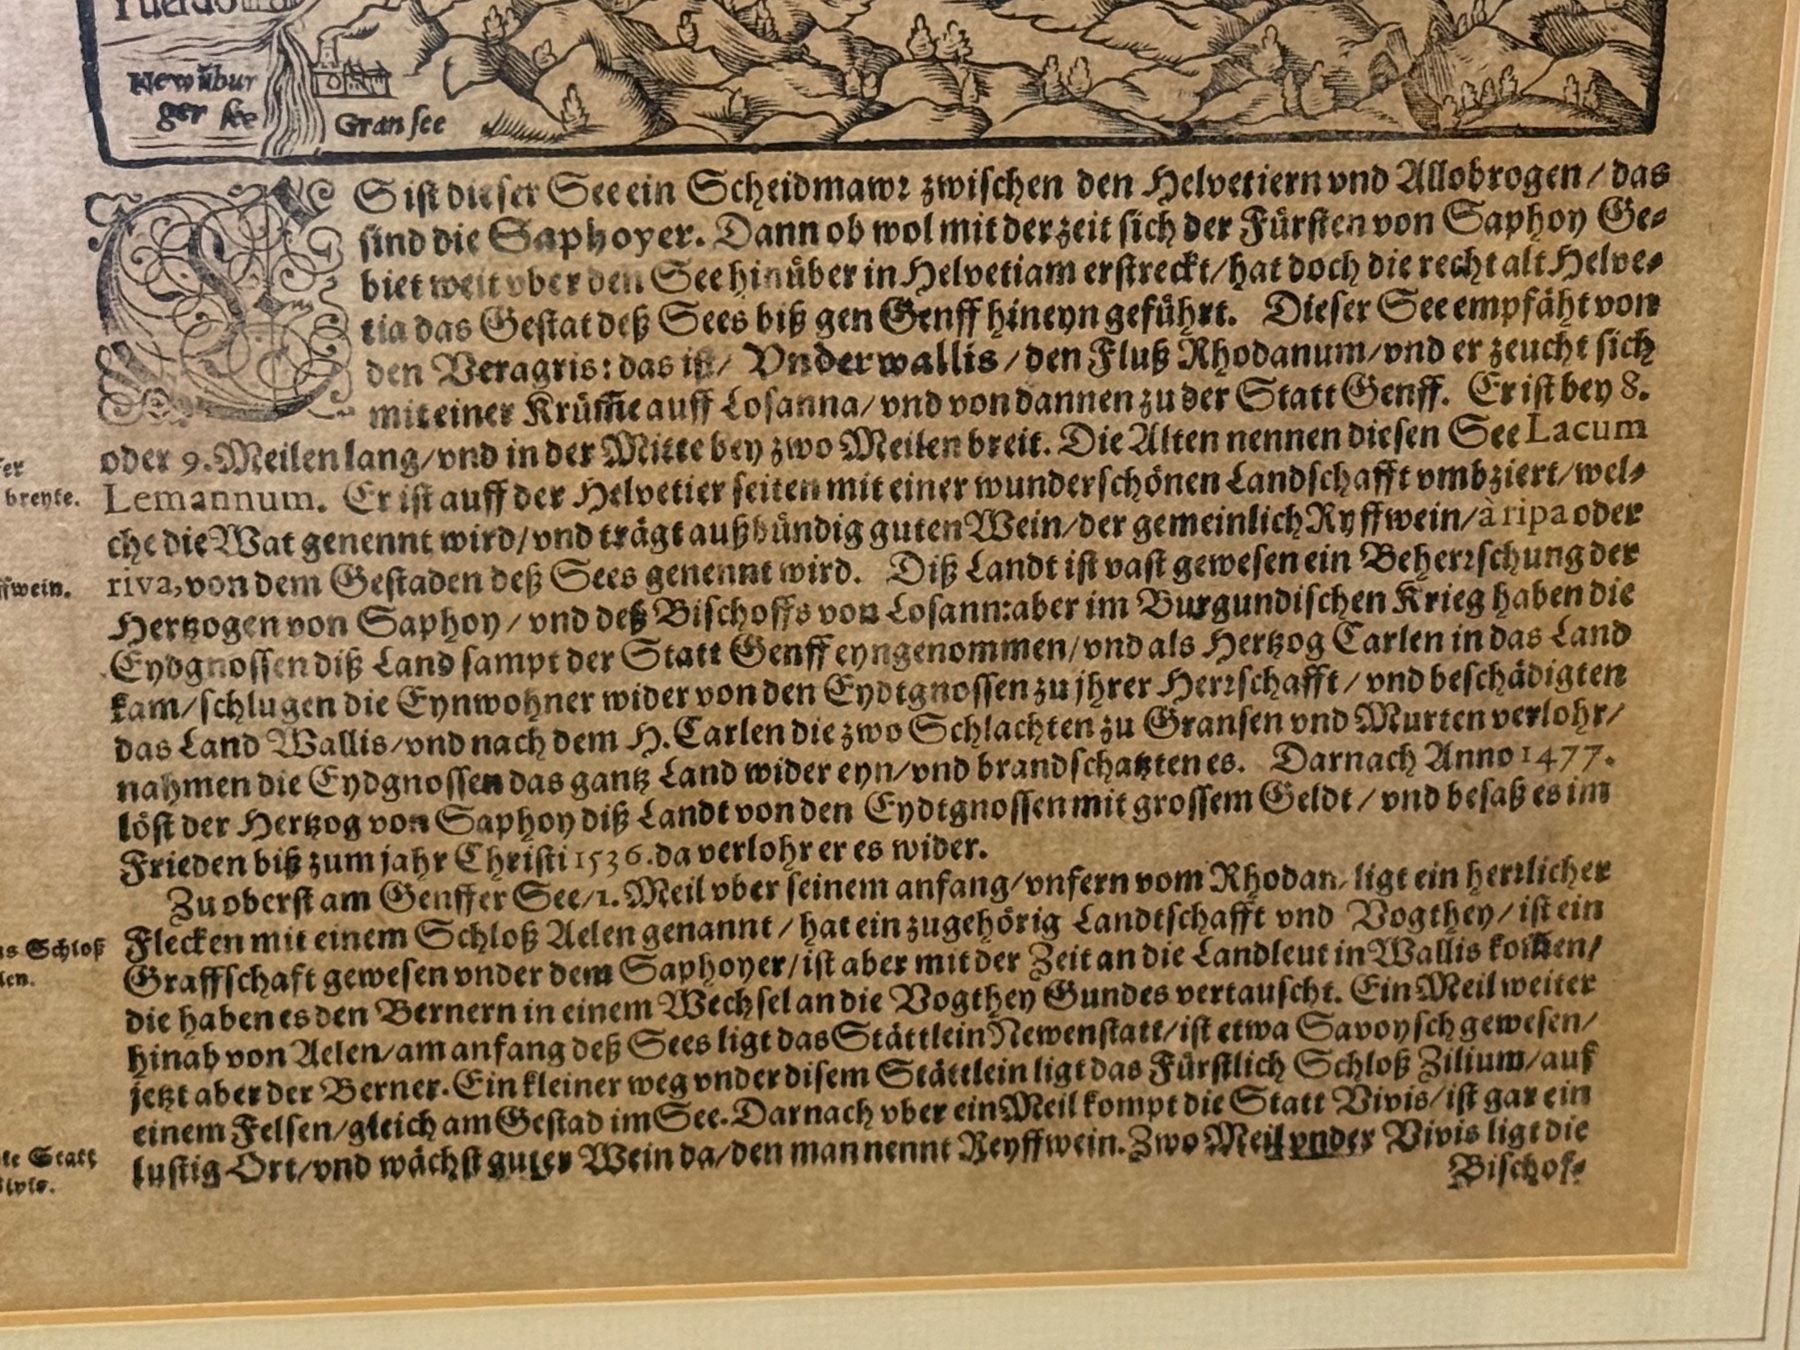 Newẽbur
ger see
Gransee
ES ist dieser See ein Scheidmawr zwischen den Helvetiern vnd Allobrogen/das
sind die Saphoyer. Dann ob wol mit der zeit sich der Fürsten von Saphoy Ge-
biet weit vber den See hinüber in Helvetiam erstreckt/hat doch die recht alt Helve-
tia das Gestat deß Sees biß gen Genff hineyn geführt. Dieser See empfäht von
den Veragris: das ist/ Vnderwallis/den Fluß Rhodanum/vnd er zeucht sich
mit einer Krüm̃e auff Losanna/vnd von dannen zu der Statt Genff. Er ist bey 8.
oder 9. Meilen lang/vnd in der Mitte bey zwo Meilen breit. Die Alten nennen diesen See Lacum
breyte.
Lemannum. Er ist auff der Helvetier seiten mit einer wunderschönen Landschafft vmbziert/wel-
che die Wat genennt wird/vnd trägt außbündig guten Wein/der gemeinlich Ryffwein/à ripa oder
ffwein.
riva, von dem Gestaden deß Sees genennt wird. Diß Landt ist vast gewesen ein Beherrschung der
Hertzogen von Saphoy/vnd deß Bischoffs von Losann: aber im Burgundischen Krieg haben die
Eydgnossen diß Land sampt der Statt Genff eyngenommen/vnd als Hertzog Carlen in das Land
kam/schlugen die Eynwohner wider von den Eydtgnossen zu jhrer Herrschafft/vnd beschädigten
das Land Wallis/vnd nach dem H. Carlen die zwo Schlachten zu Gransen vnd Murten verlohr/
nahmen die Eydgnossen das gantz Land wider eyn/vnd brandschatzten es. Darnach Anno 1477.
löst der Hertzog von Saphoy diß Landt von den Eydtgnossen mit grossem Geldt/vnd besaß es im
Frieden biß zum jahr Christi 1536. da verlohr er es wider.
Zu oberst am Genffer See/1. Meil vber seinem anfang/vnfern vom Rhodan/ligt ein herrlicher
s Schloß
Flecken mit einem Schloß Aelen genannt/hat ein zugehörig Landtschafft vnd Vogthey/ist ein
len.
Graffschaft gewesen vnder dem Saphoyer/ist aber mit der Zeit an die Landleut in Wallis kom̃en/
die haben es den Bernern in einem Wechsel an die Vogthey Gundes vertauscht. Ein Meil weiter
hinab von Aelen/am anfang deß Sees ligt das Stättlein Newenstatt/ist etwa Savoysch gewesen/
jetzt aber der Berner. Ein kleiner weg vnder disem Stättlein ligt das Fürstlich Schloß Zilium/auf
einem Felsen/gleich am Gestad im See. Darnach vber ein Meil kompt die Statt Vivis/ist gar ein
te Statt
lustig Ort/vnd wächst guter Wein da/den man nennt Reyffwein. Zwo Meil vnder Vivis ligt die
Bischof-